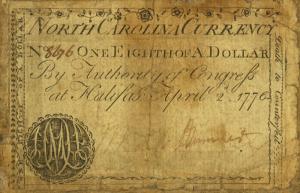 NORTH CAROLINA CURRENCY
No. 8696 ONE EIGHTH OF A DOLLAR
By Authority of Congress
at Halifax April 2d. 1776
Death to Counterfeit